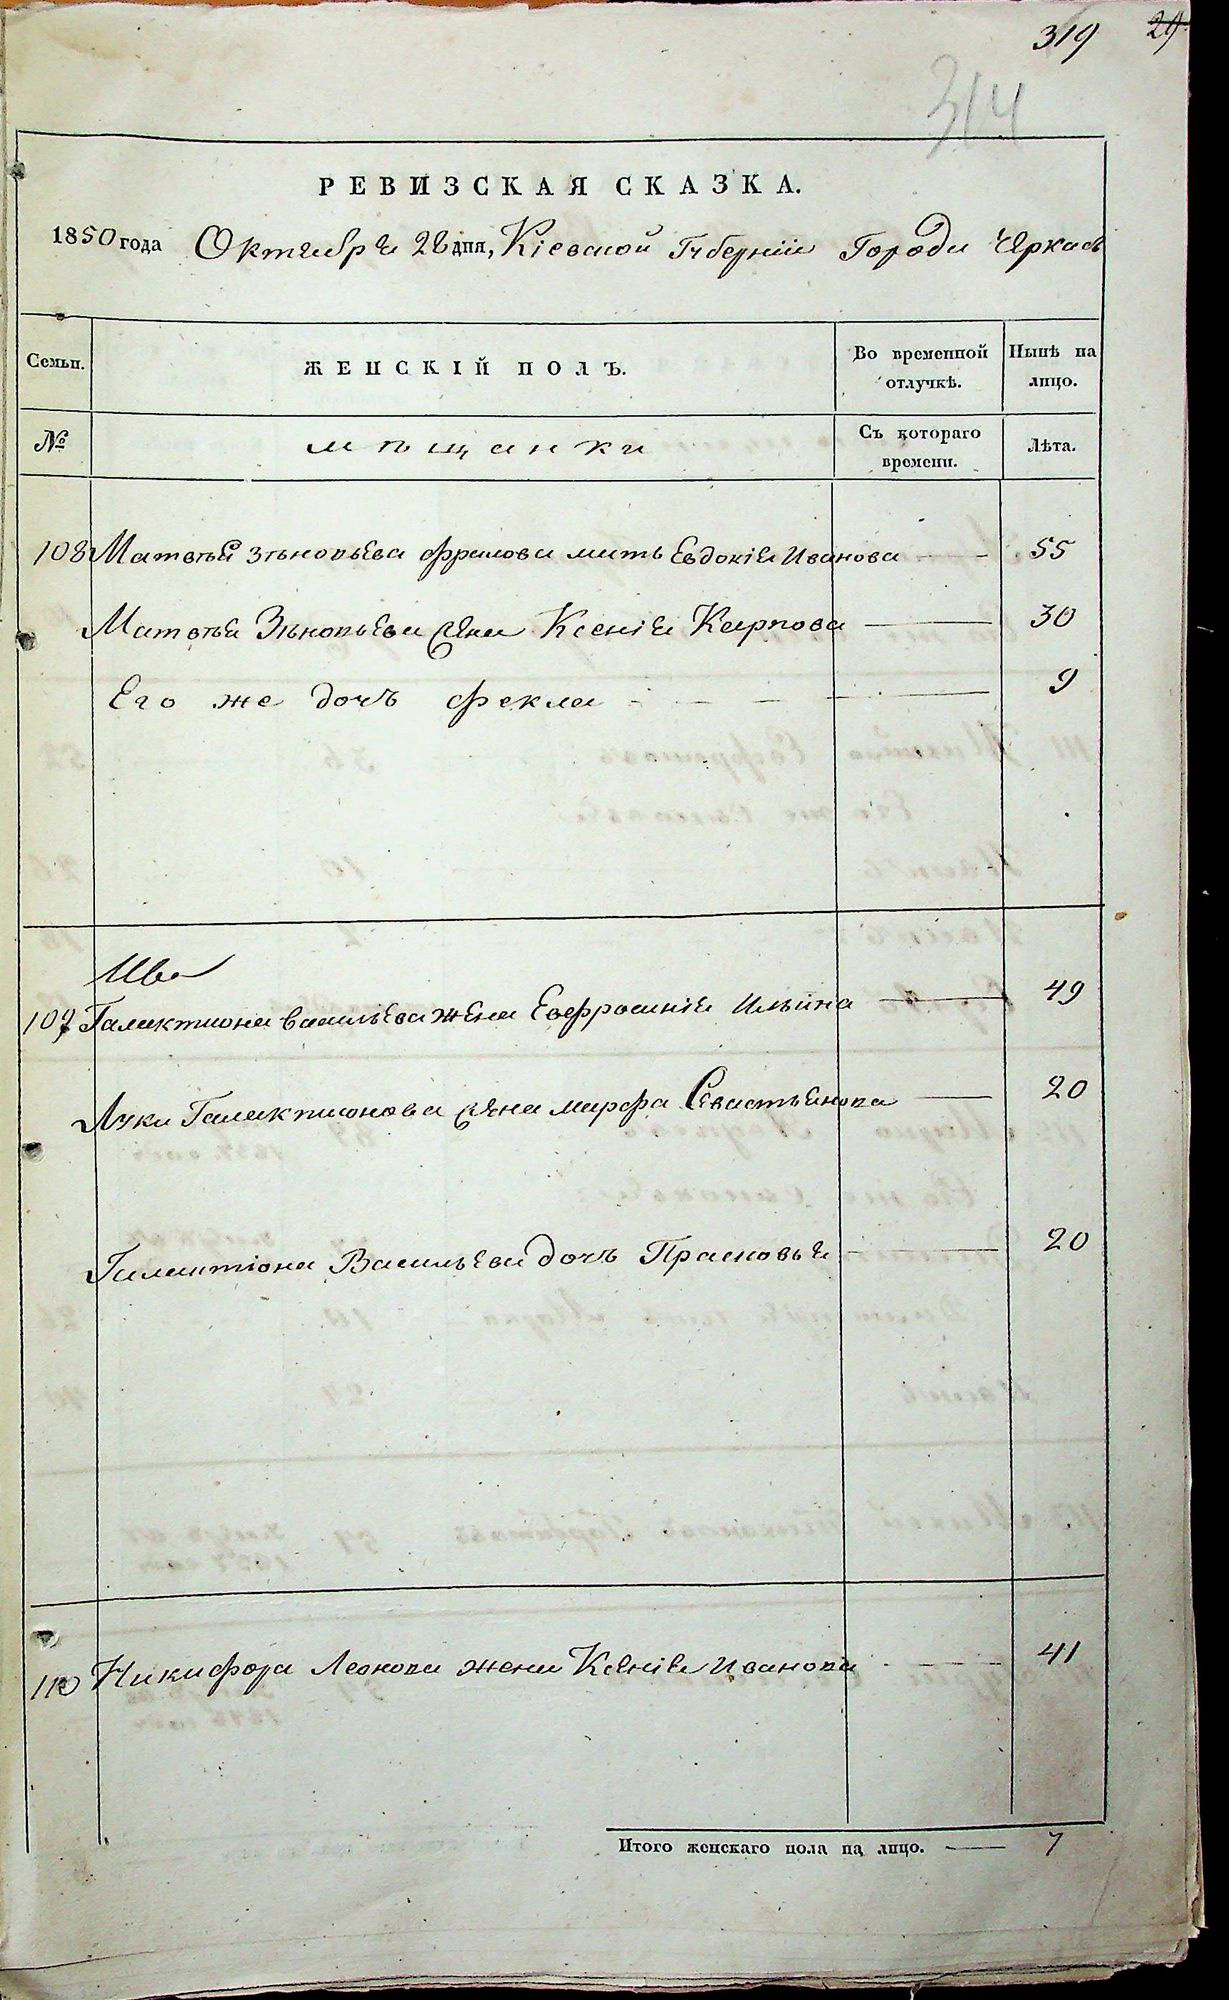 319 29
314
РЕВИЗСКАЯ СКАЗКА.
1850 года Октября 28 дня, Кіевской Губерніи Города Черкасъ
Семьи. ЖЕНСКІЙ ПОЛЪ. Во временной отлучкѣ. Нынѣ на лицо.
№ мѣщанки Съ котораго времени. Лѣта.
108 Матвѣя Зѣновьева Фралова мать Евдокія Иванова 55
Матвѣя Зѣновьева жена Ксенія Карпова 30
Его же дочь Фекла 9
Ива
109 Галактиона Васильева жена Евфросинія Ильина 49
Луки Галактионова жена Марфа Севастьянова 20
Галактіона Васильева дочь Прасковья 20
110 Никифора Леонова жена Ксенія Иванова 41
Итого женскаго пола на лицо. 7